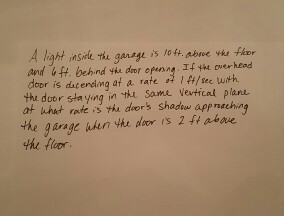 A light inside the garage is 10 ft. above the floor
and 6 ft. behind the door opening. If the overhead
door is decending at a rate of 1 ft/sec with
the door staying in the same vertical plane
at what rate is the door's shadow approaching
the garage when the door is 2 ft above
the floor.